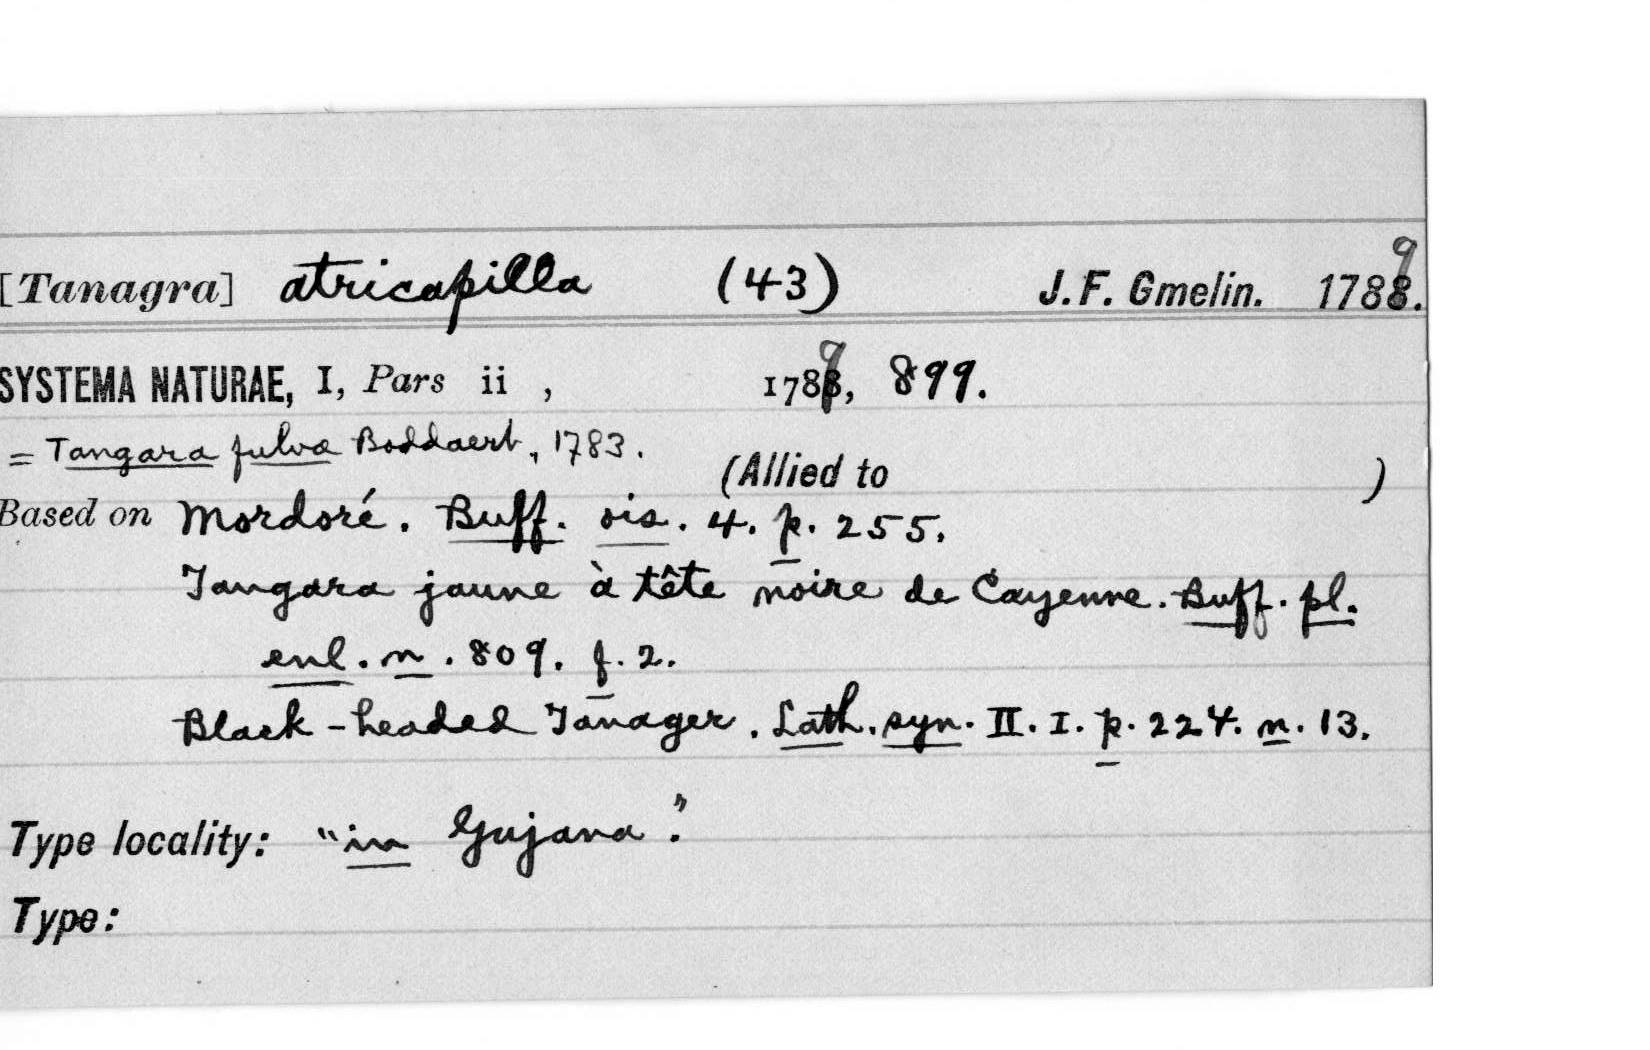 [Tanagra] atricapilla (43) J. F. Gmelin. 1789.
SYSTEMA NATURAE, I, Pars ii , 1789, 899.
= Tangara fulva Boddaert, 1783.
(Allied to )
Based on Mordoré. Buff. ois. 4. p. 255.
Tangara jaune à tête noire de Cayenne. Buff. pl.
enl. n. 809. f. 2.
Black-headed Tanager. Lath. syn. II. I. p. 224. n. 13.
Type locality: "in Gujana."
Type: